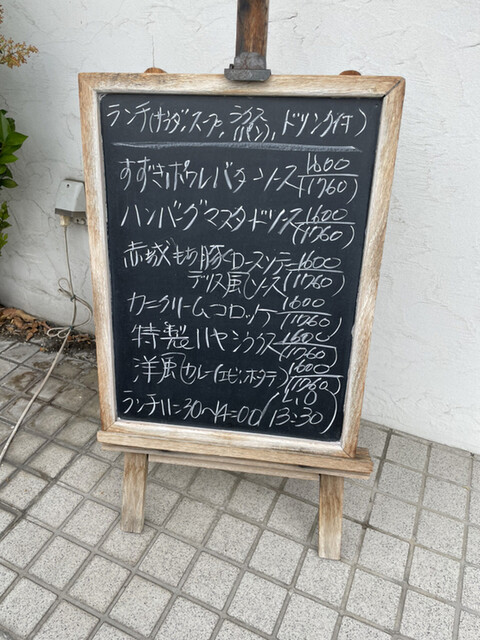 ランチ(サラダ、スープ、ライス(パン)、ドリンク付)
すずきポワレバターソース 1600(1760)
ハンバーグマスタードソース 1600(1760)
赤城もち豚ロースソテー 1600
デリス風ソース (1760)
カニクリームコロッケ 1600(1760)
特製ハヤシライス 1600(1760)
洋風カレー(エビ、ホタテ) 1600(1760)
ランチ11:30〜14:00(L.O 13:30)